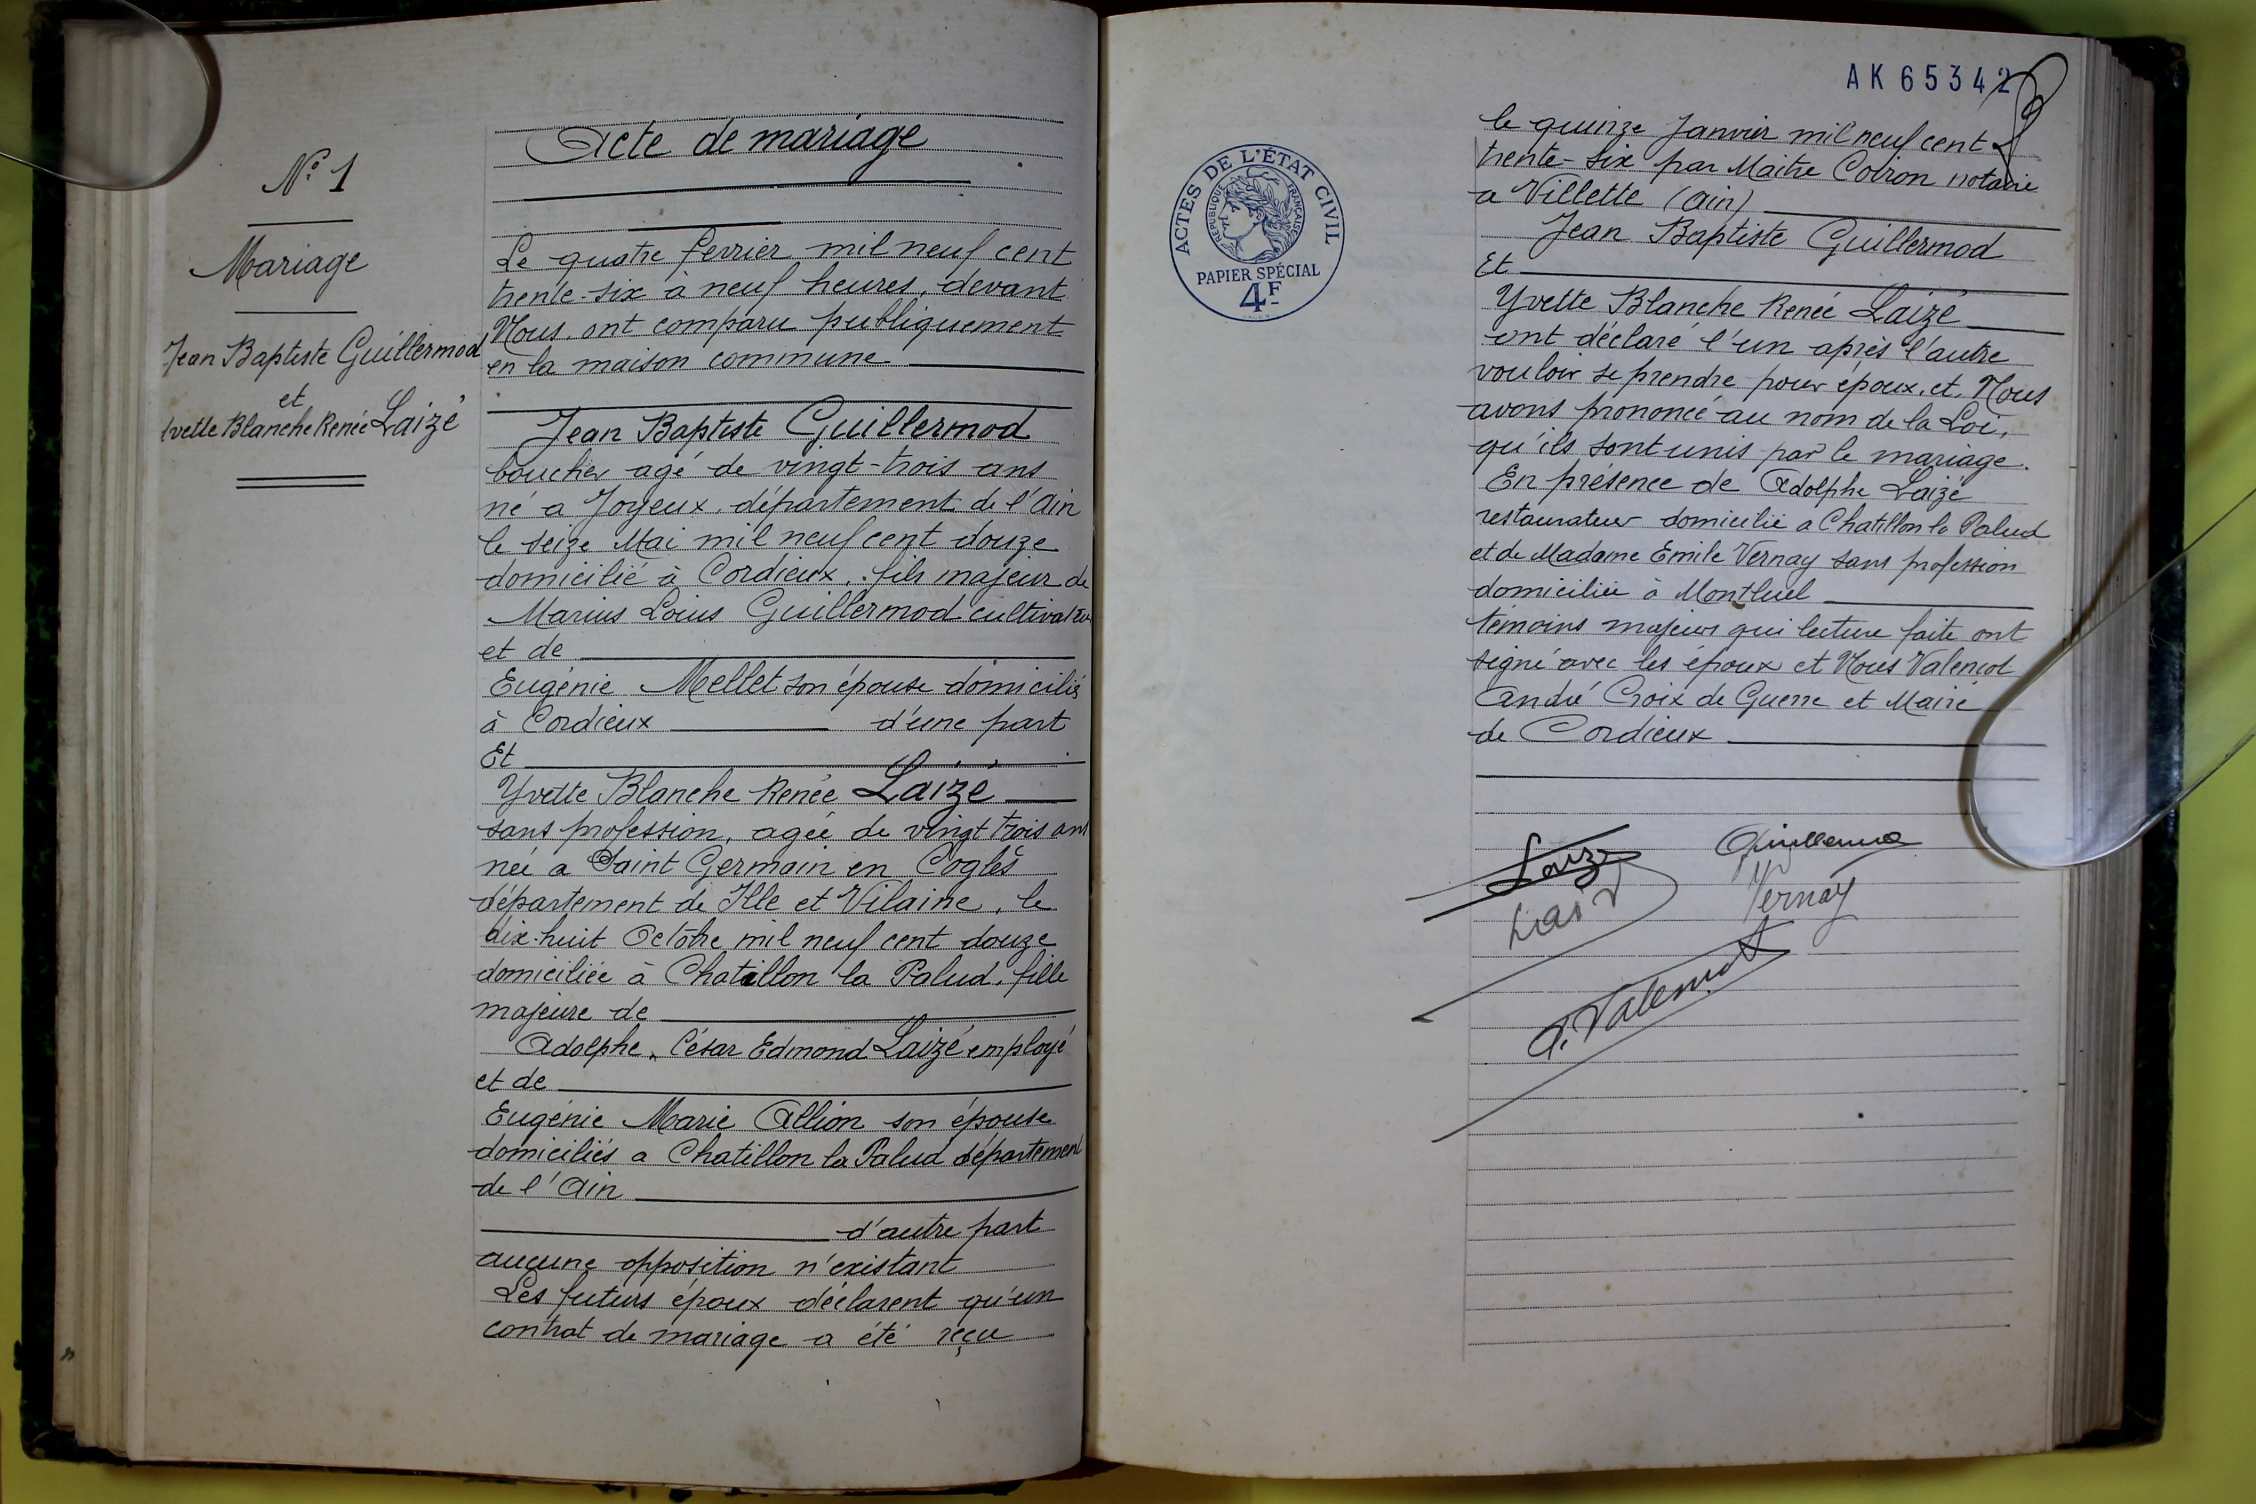 N° 1
Mariage
Jean Baptiste Guillermod
et
Yvette Blanche Renée Laizé
Acte de mariage
Le quatre fevrier mil neuf cent
trente-six à neuf heures, devant
Nous, ont comparu publiquement
en la maison commune
Jean Baptiste Guillermod
boucher agé de vingt-trois ans
né a Joyeux, département de l'Ain
le seize Mai mil neuf cent douze
domicilié à Cordieux, fils majeur de
Marius Loius Guillermod cultivateur
et de
Eugénie Mellet son épouse domiciliés
à Cordieux d'une part
Et
Yvette Blanche Renée Laizé
sans profession, agée de vingt trois ans
née a Saint Germain en Coglès
département de Ille et Vilaine, le
dix-huit Octobre mil neuf cent douze
domiciliée à Chatillon la Palud, fille
majeure de
Adolphe, César Edmond Laizé employé
et de
Eugénie Marie Allion son épouse
domiciliés a Chatillon la Palud département
de l'Ain
d'autre part
aucune opposition n'existant
Les futurs époux déclarent qu'un
contrat de mariage a été reçu
AK 65342
le quinze Janvier mil neuf cent
trente-six par Maitre Coiron notaire
a Villette (Ain)
Jean Baptiste Guillermod
Et
Yvette Blanche Renée Laizé
ont déclaré l'un après l'autre
vouloir se prendre pour époux, et, Nous
avons prononcé au nom de la Loi,
qu'ils sont unis par le mariage.
En présence de Adolphe Laizé
restaurateur domicilié a Chatillon la Palud
et de Madame Emile Vernay sans profession
domiciliée à Montluel
témoins majeurs qui lecture faite ont
signé avec les époux et Nous Valencot
André Croix de Guerre et Maire
de Cordieux
ACTES DE L'ÉTAT CIVIL
RÉPUBLIQUE FRANÇAISE
PAPIER SPÉCIAL
4F
Laizé
Guillermod
Vernay
A. Valencot